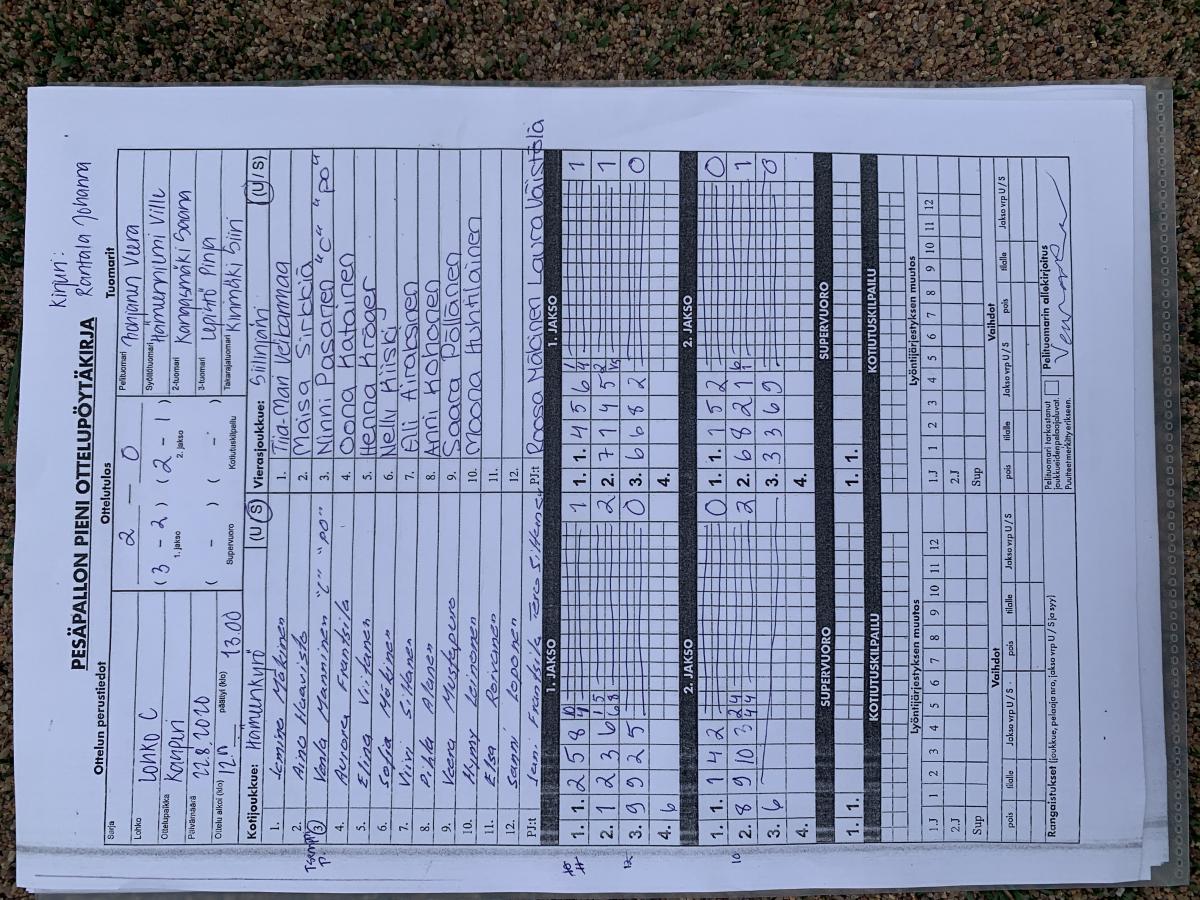 Kirjuri:
Rantala Johanna
PESÄPALLON PIENI OTTELUPÖYTÄKIRJA
Ottelun perustiedot
Ottelutulos
Tuomarit
Sarja
Lohko Lohko C
Ottelupaikka Kampuri
Päivämäärä 22.8.2020
Ottelu alkoi (klo) 12.00 päättyi (klo) 13.00
2 — 0
(3 - 2) (2 - 1)
1. jakso 2. jakso
( - ) ( - )
Supervuoro Kotiutuskilpailu
Pelituomari Veera
Syöttötuomari Hämeenniemi Ville
2-tuomari Kangasmäki Saana
3-tuomari Lepistö Pinja
Takarajatuomari Kinimäki Siiri
Kotijoukkue: Hämeenkyrö (U / S)
1. Jemina Mäkinen
2. Aino Haavisto
3. Venla Manninen "C" "PO"
4. Aurora Frantsila
5. Elina Viitanen
6. Sofia Mäkinen
7. Viivi Siltanen
8. Pihla Alanen
9. Veera Mustapuro
10. Hymy Leinonen
11. Elsa Koivunen
12. Sanni Loponen
PJ:t Jani Frantsila Tero Siltanen
Vierasjoukkue: Siilinjärvi (U / S)
1. Tiia-Mari Veikanmaa
2. Maisa Sirckiä
3. Ninni Pasanen "C" "PO"
4. Oona Katainen
5. Henna Kröger
6. Nelli Kiiski
7. Elli Airaksinen
8. Anni Kohonen
9. Saara Pöllänen
10. Moona Huhtilainen
11.
12.
PJ:t Roosa Määttänen Laura Väistölä
1. JAKSO
1. JAKSO
1. 1. 2 5 8 1
2. 1 2 3 6 2
3. 9 9 2 5 0
4. 6
1. 1. 4 5 6 1
2. 7 1 4 5 1
3. 6 6 8 2 0
4.
2. JAKSO
2. JAKSO
1. 1. 1 4 2 0
2. 8 9 10 3 2
3. 6
4.
1. 1. 1 5 2 0
2. 6 8 2 1 1
3. 3 3 6 9 0
4.
SUPERVUORO
SUPERVUORO
1. 1.
1. 1.
KOTIUTUSKILPAILU
KOTIUTUSKILPAILU
Lyöntijärjestyksen muutos
Lyöntijärjestyksen muutos
1.J 1 2 3 4 5 6 7 8 9 10 11 12
2.J
Sup
1.J 1 2 3 4 5 6 7 8 9 10 11 12
2.J
Sup
Vaihdot
Vaihdot
pois tilalle Jakso vrp U / S pois tilalle Jakso vrp U / S
pois tilalle Jakso vrp U / S pois tilalle Jakso vrp U / S
Rangaistukset (joukkue, pelaaja nro, jakso vrp U / S ja syy)
Pelituomari tarkastanut joukkueiden pelaajaluvat. Puutteet merkitty erikseen.
Pelituomarin allekirjoitus